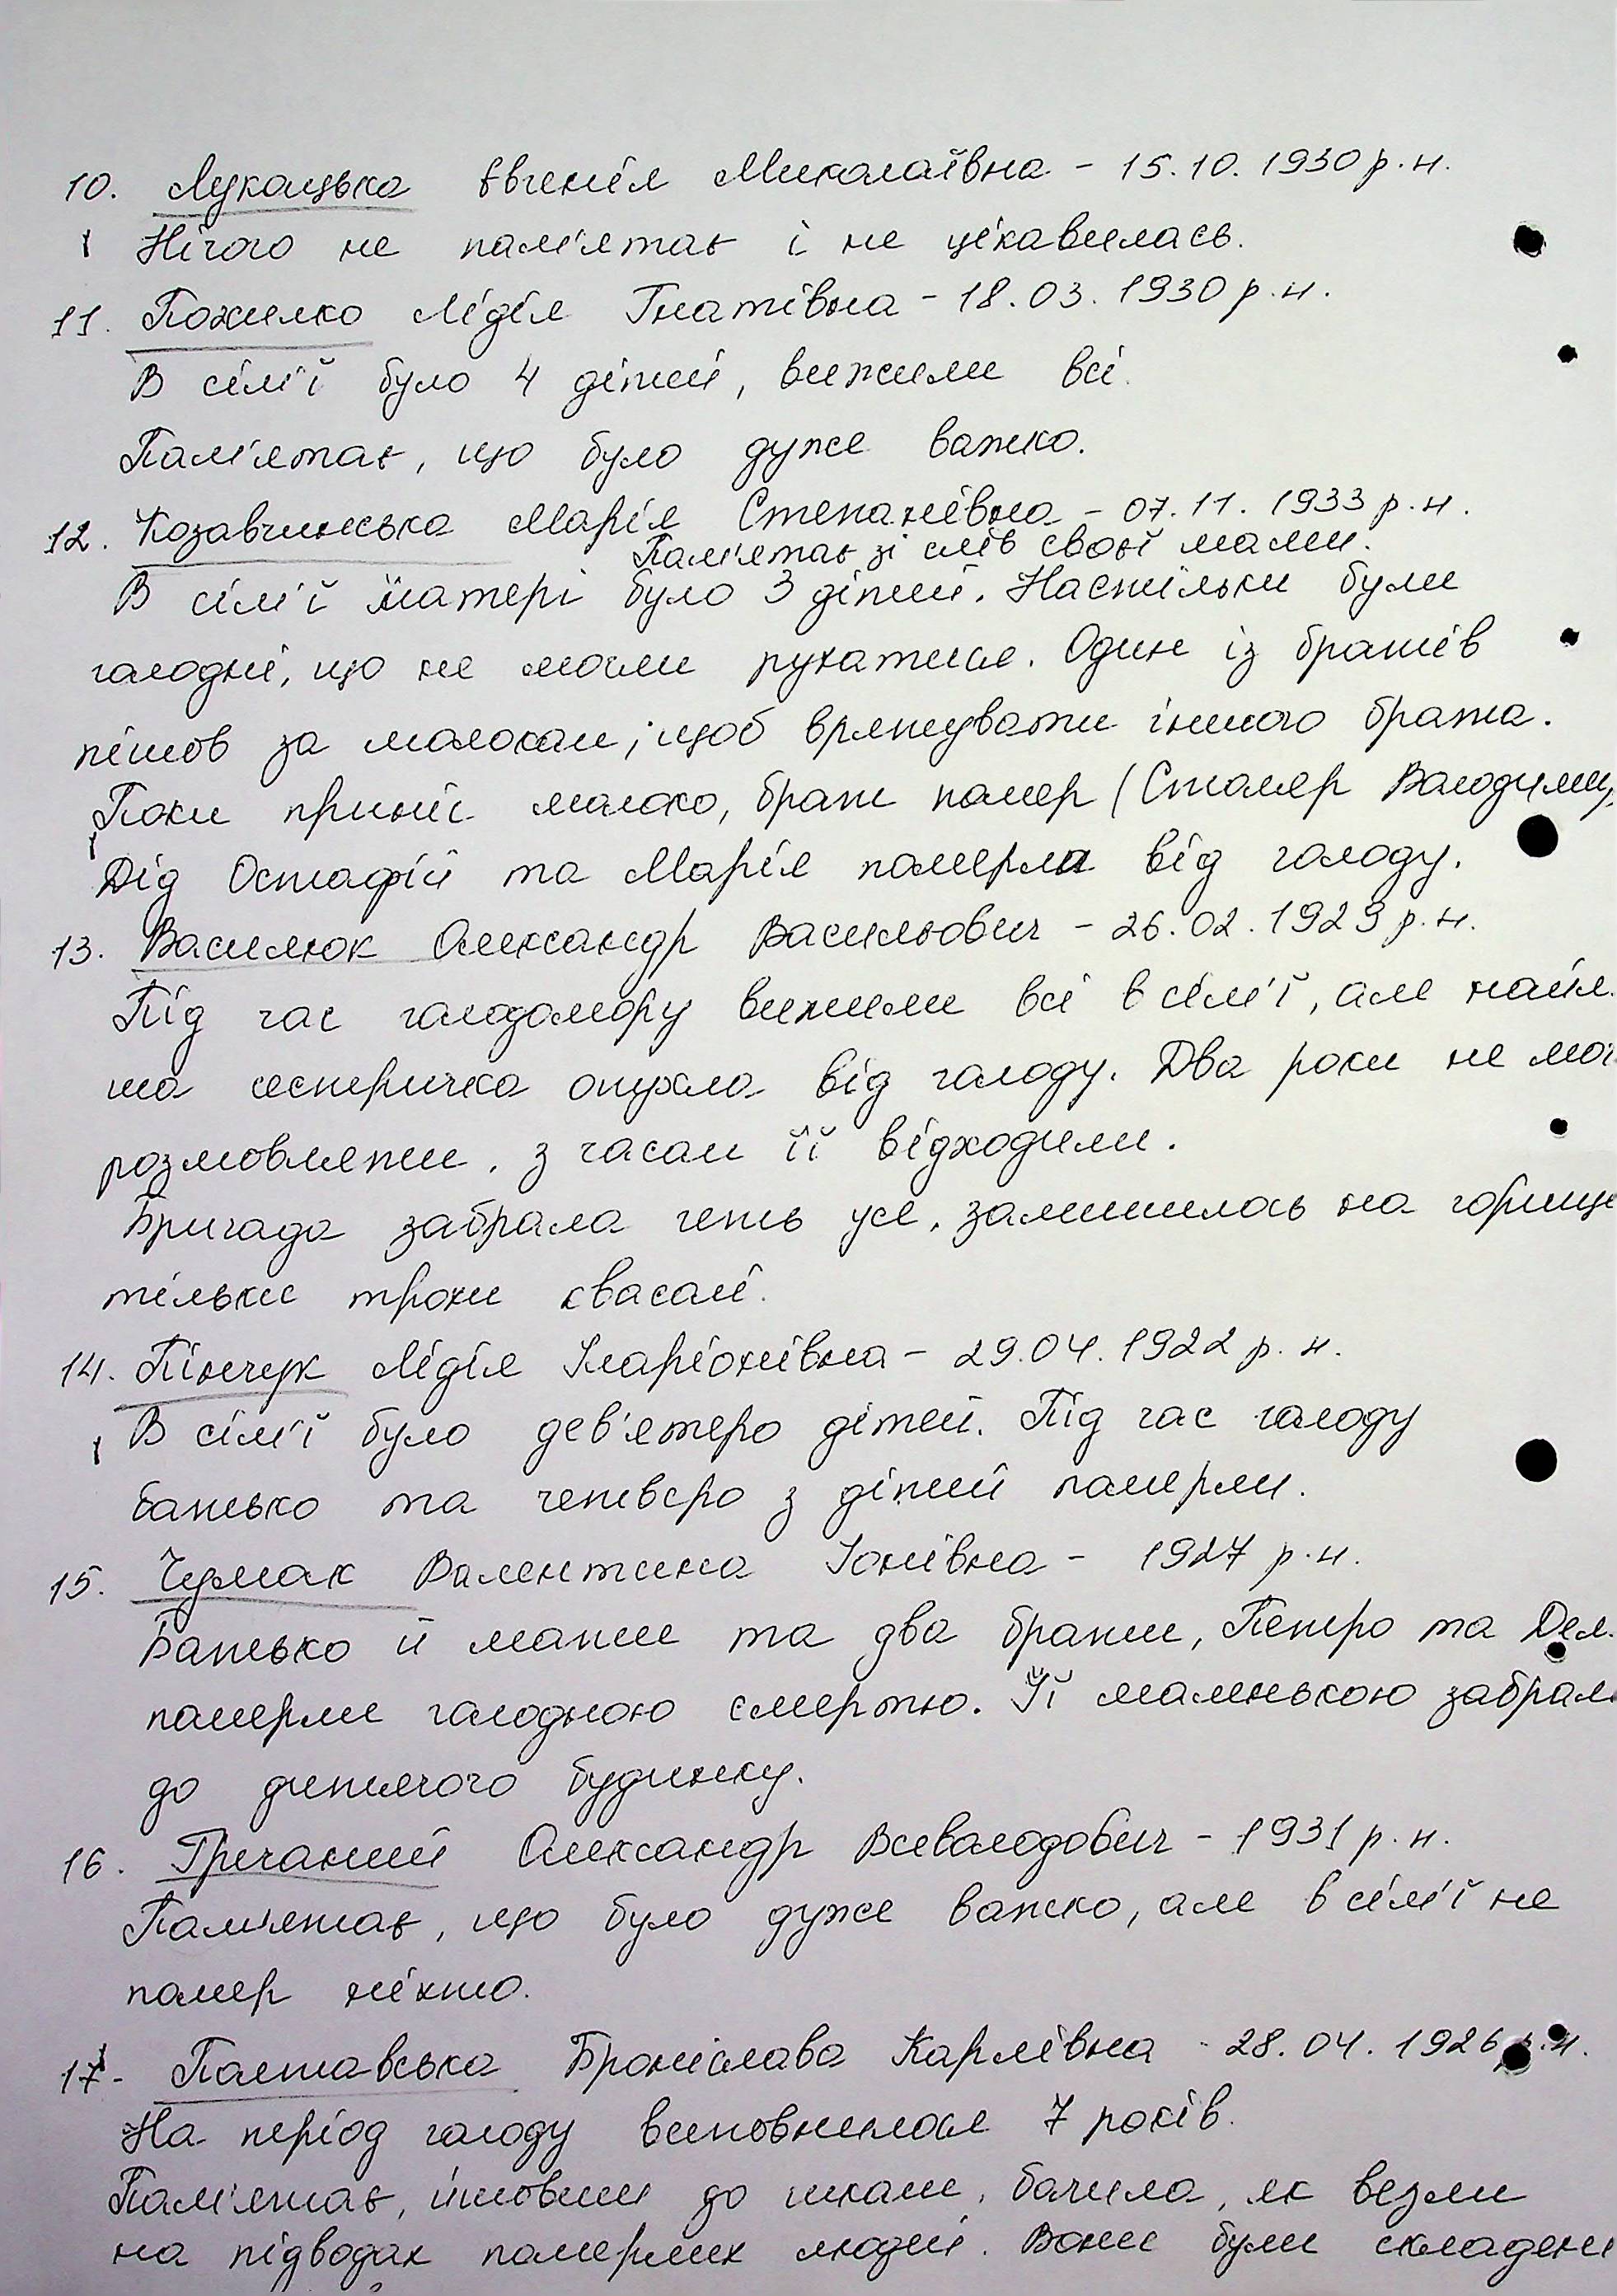 10. Лукацька Євгенія Миколаївна - 15.10.1930 р.н.
Нічого не пам'ятає і не цікавилась.
11. Пожилко Лідія Гнатівна - 18.03.1930 р.н.
В сім'ї було 4 дітей, вижили всі.
Пам'ятає, що було дуже важко.
12. Козавчинська Марія Степанівна - 07.11.1933 р.н.
Пам'ятає зі слів своєї мами.
В сім'ї матері було 3 дітей. Настільки були
голодні, що не могли рухатися. Один із братів
пішов за молоком, щоб врятувати іншого брата.
Поки приніс молоко, брат помер (Столяр Володимир
Дід Остафій та Марія померли від голоду.
13. Василюк Олександр Васильович - 26.02.1929 р.н.
Під час голодомору вижили всі в сім'ї, але найм
ша сестричка опухла від голоду. Два роки не мог
розмовляти, з часом її відходили.
Бригада забрала геть усе, залишилось на горищі
тільки трохи квасолі.
14. Пінчук Лідія Іларіонівна - 29.04.1922 р.н.
В сім'ї було дев'ятеро дітей. Під час голоду
батько та четверо з дітей померли.
15. Чумак Валентина Іонівна - 1927 р.н.
Батько й мати та два брати, Петро та Дем
померли голодною смертю. Її маленькою забрал
до дитячого будинку.
16. Гречаний Олександр Всеволодович - 1931 р.н.
Пам'ятає, що було дуже важко, але в сім'ї не
помер ніхто.
17. Полтавська Броніслава Карлівна - 28.04.1926 р.н.
На період голоду виповнилося 7 років.
Пам'ятає, йшовши до школи, бачила, як везли
на підводах померлих людей. Вони були складені